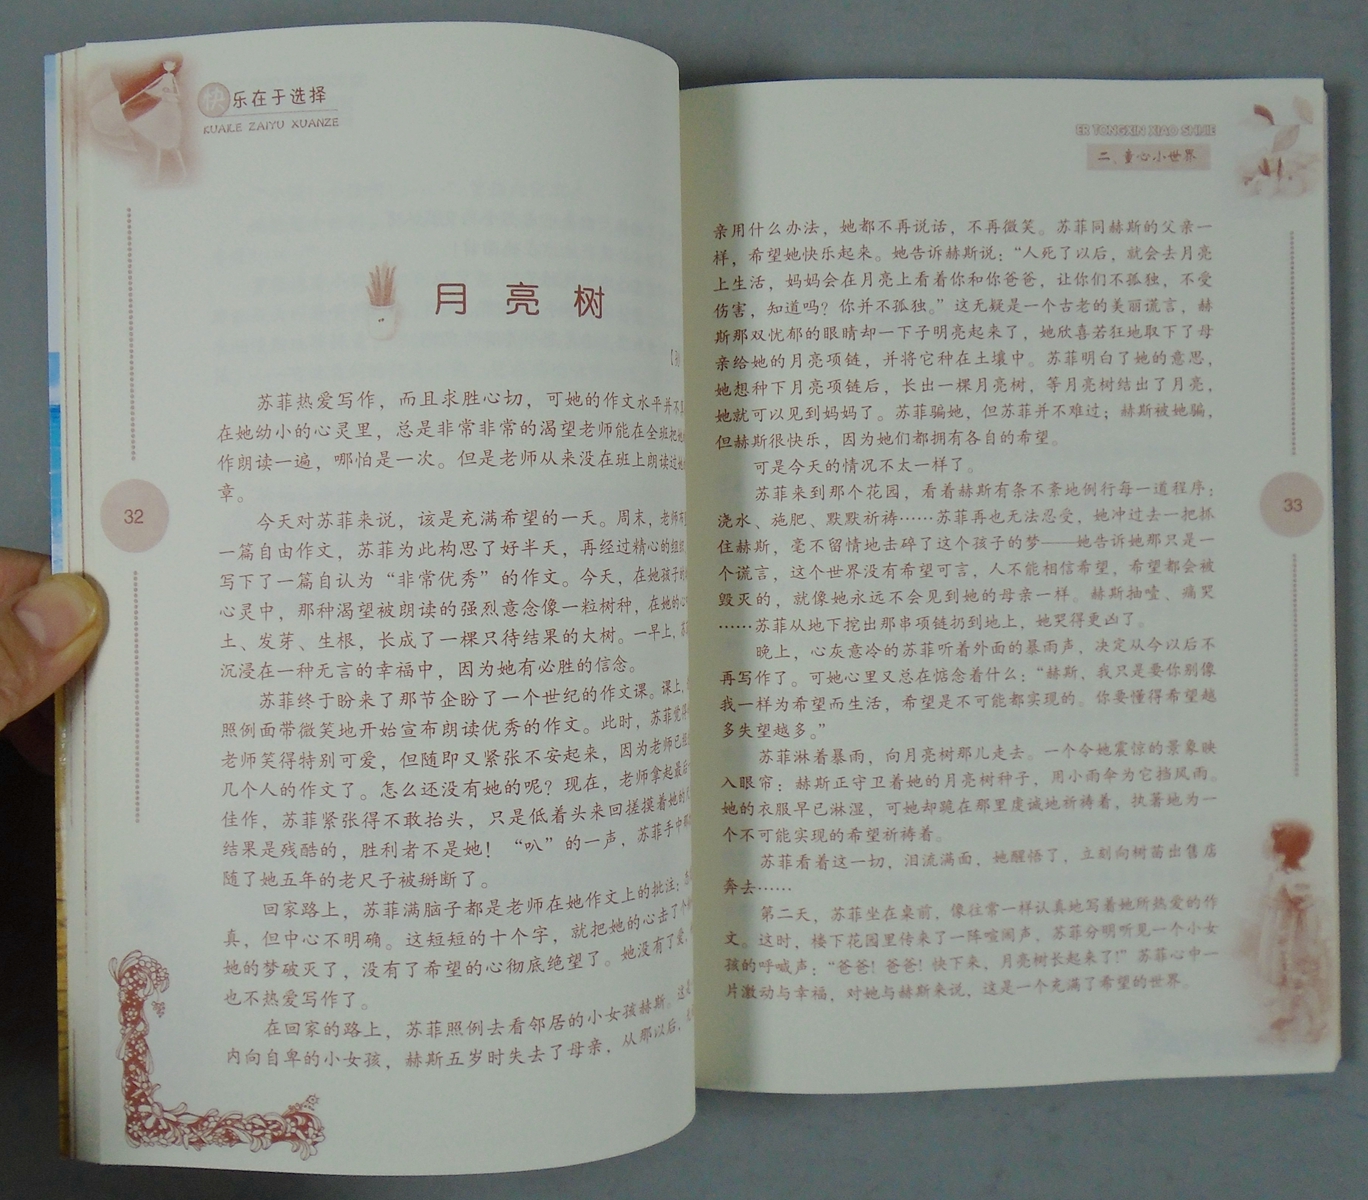 快乐在于选择
KUAILE ZAIYU XUANZE
月亮树
苏菲热爱写作，而且求胜心切，可她的作文水平并不
在她幼小的心灵里，总是非常非常的渴望老师能在全班把
作朗读一遍，哪怕是一次。但是老师从来没在班上朗读过
章。
今天对苏菲来说，该是充满希望的一天。周末，老师
一篇自由作文，苏菲为此构思了好半天，再经过精心的组
写下了一篇自认为“非常优秀”的作文。今天，在她孩子
心灵中，那种渴望被朗读的强烈意念像一粒树种，在她的
土、发芽、生根，长成了一棵只待结果的大树。一早上，
沉浸在一种无言的幸福中，因为她有必胜的信念。
苏菲终于盼来了那节企盼了一个世纪的作文课。课上，
照例面带微笑地开始宣布朗读优秀的作文。此时，苏菲觉
老师笑得特别可爱，但随即又紧张不安起来，因为老师已
几个人的作文了。怎么还没有她的呢？现在，老师拿起最后
佳作，苏菲紧张得不敢抬头，只是低着头来回搓摸着她的
结果是残酷的，胜利者不是她！“叭”的一声，苏菲手中
随了她五年的老尺子被掰断了。
回家路上，苏菲满脑子都是老师在她作文上的批注：
真，但中心不明确。这短短的十个字，就把她的心击了个
她的梦破灭了，没有了希望的心彻底绝望了。她没有了爱，
也不热爱写作了。
在回家的路上，苏菲照例去看邻居的小女孩赫斯。这是
内向自卑的小女孩，赫斯五岁时失去了母亲，从那以后，
32
ER TONGXIN XIAO SHIJIE
二、童心小世界
亲用什么办法，她都不再说话，不再微笑。苏菲同赫斯的父亲一
样，希望她快乐起来。她告诉赫斯说：“人死了以后，就会去月亮
上生活，妈妈会在月亮上看着你和你爸爸，让你们不孤独，不受
伤害，知道吗？你并不孤独。”这无疑是一个古老的美丽谎言，赫
斯那双忧郁的眼睛却一下子明亮起来了，她欣喜若狂地取下了母
亲给她的月亮项链，并将它种在土壤中。苏菲明白了她的意思，
她想种下月亮项链后，长出一棵月亮树，等月亮树结出了月亮，
她就可以见到妈妈了。苏菲骗她，但苏菲并不难过；赫斯被她骗，
但赫斯很快乐，因为她们都拥有各自的希望。
可是今天的情况不太一样了。
苏菲来到那个花园，看着赫斯有条不紊地例行每一道程序：
浇水、施肥、默默祈祷……苏菲再也无法忍受，她冲过去一把抓
住赫斯，毫不留情地击碎了这个孩子的梦——她告诉她那只是一
个谎言，这个世界没有希望可言，人不能相信希望，希望都会被
毁灭的，就像她永远不会见到她的母亲一样。赫斯抽噎、痛哭
……苏菲从地下挖出那串项链扔到地上，她哭得更凶了。
晚上，心灰意冷的苏菲听着外面的暴雨声，决定从今以后不
再写作了。可她心里又总在惦念着什么：“赫斯，我只是要你别像
我一样为希望而生活，希望是不可能都实现的。你要懂得希望越
多失望越多。”
苏菲淋着暴雨，向月亮树那儿走去。一个令她震惊的景象映
入眼帘：赫斯正守卫着她的月亮树种子，用小雨伞为它挡风雨。
她的衣服早已淋湿，可她却跪在那里虔诚地祈祷着，执著地为一
个不可能实现的希望祈祷着。
苏菲看着这一切，泪流满面，她醒悟了，立刻向树苗出售店
奔去……
第二天，苏菲坐在桌前，像往常一样认真地写着她所热爱的作
文。这时，楼下花园里传来了一阵喧闹声，苏菲分明听见一个小女
孩的呼喊声：“爸爸！爸爸！快下来，月亮树长起来了！”苏菲心中一
片激动与幸福，对她与赫斯来说，这是一个充满了希望的世界。
33